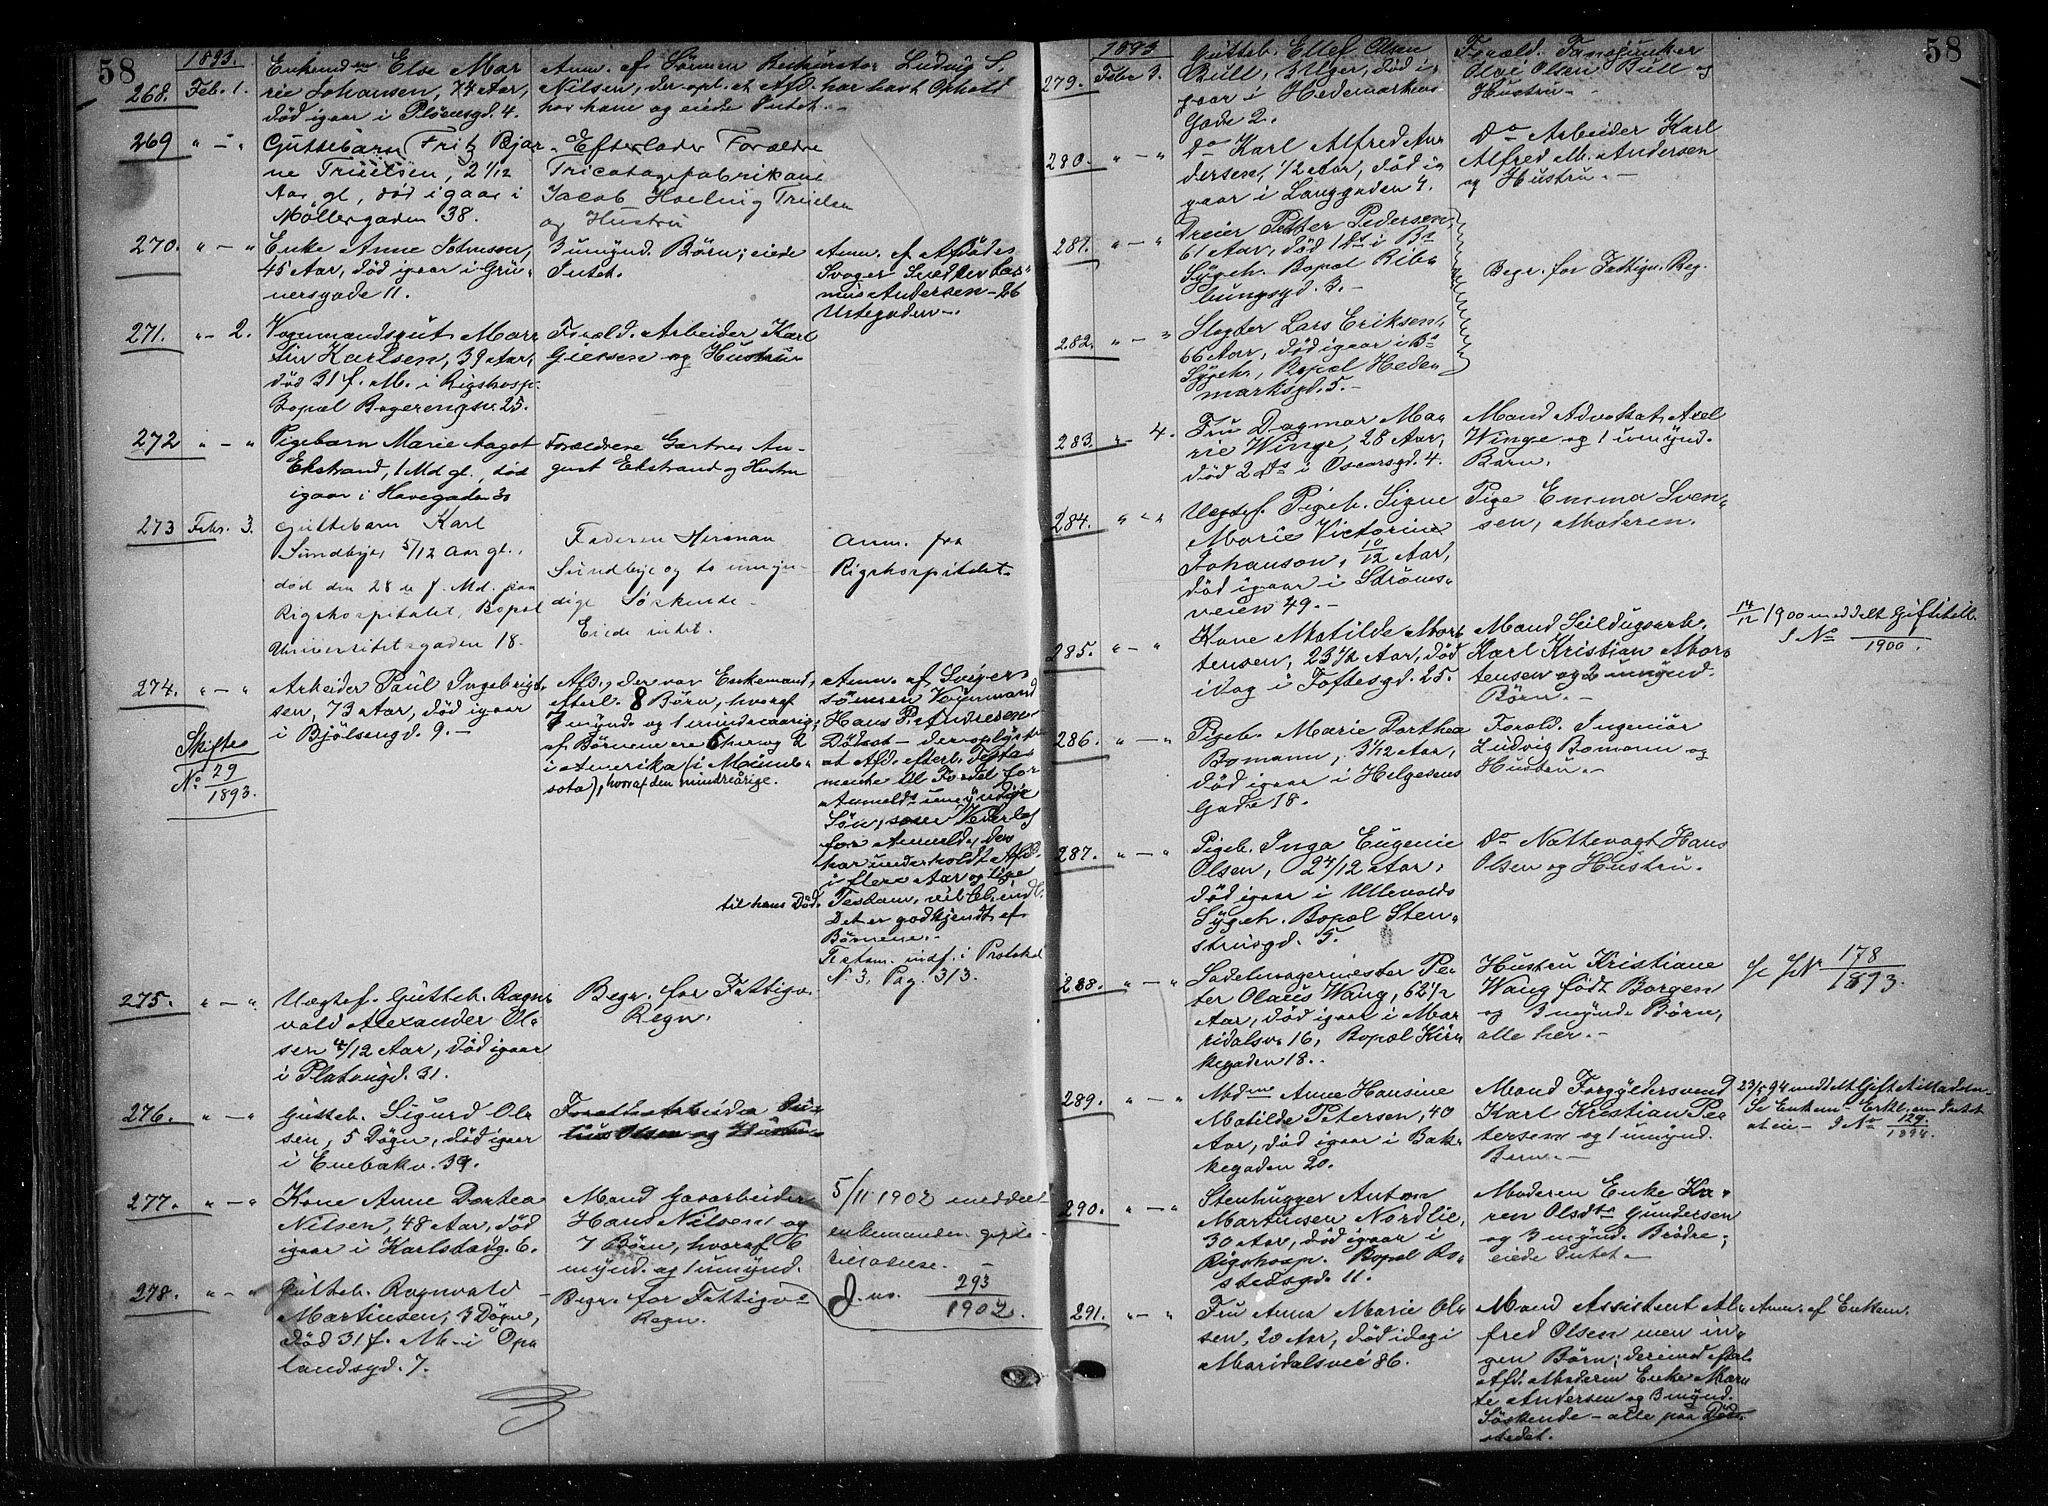 58
1893.
268. Feb. 1.
Enkemdm Else Ma-
rie Johansen, 74 Aar,
død igaar i Pløensgd. 4.
Anm. af Sønnen Ludvig S.
Nilsen, der opl. at Afd. har havt Ophold
hos ham og eiede Intet.
269 " - "
Guttebarn Fritz Bjar-
ne Truelsen, 2 1/12
Aar gl, død igaar i
Møllergaden 38.
Efterlader Forældre
Tricotagefabrikant
Jacob
og Hustru
270. " - "
Enke Anne Johnsen,
45 Aar, død igaar i Grü-
nersgade 11.
3 umynd. Børn; eiede
Intet.
Anm. af Afdødes
Svoger Snedker Ras-
mus Andersen - 26
Urtegaden.
271. " - 2.
Vognmandsgut Mar-
tin Karlsen, 39 Aar,
død 31 f. M. i Rigshosp.
Bopæl Bogerengsv. 25.
Foræld. Arbeider Karl
og Hustru
272 " - "
Pigebarn Marie Aagot
Ekstrand, 1 Md gl., død
igaar i Havegaden 30
Forældrene Gartner Au-
gust Ekstrand og Hustru
273 Febr. 3.
Guttebarn Karl
Sundbye, 5/12 Aar gl.,
død den 28 de f. Md. paa
Rigshospitalet, Bopæl
Universitetsgaden 18.
Faderen Herman
Sundbye og to umyn-
dige Søskende.
Eiede intet.
Anm. fra
Rigshospitalet.
274. " - "
Skifte
No 29
1893.
Arbeider Paul Ingebrigt-
sen, 73 Aar, død igaar
i Bjølsengd. 9. -
Afd., der var Enkemand,
efterl. 8 Børn, hvoraf
7 mynd. og 1 mindreaarig;
af Børnene ere 6 her og 2
i Amerika (i Minne-
sota), hvoraf den mindreårige.
Anm. af Sviger-
sønnen Vognmand
Hans P. Andresen
Dødsst. - der oplyste
at Afd. efterl. Testa-
mente til Fordel for
Anmelds umyndige
Søn, som Vederlag
for Anmeld., der
har underholdt Afd.
i flere Aar og lige
til hans Død.
Testam. vil bli indl.
Det er godkjendt af
Børnene. -
Testam. indf. i Protokol
N 3, Pag. 313.
275. " - "
Uægtef. Gutteb. Ragn-
vald Alexander Ol-
sen 4/12 Aar, død igaar
i Platousgd. 31.
Begr. for Fattigv.
Regn.
276. " - "
Gutteb. Sigurd Ol-
sen, 5 Døgn, død igaar
i Enebakv. 39.
Foræld. Arbeider Ju-
lius Olsen og Hustru
277. " - "
Kone Anne Dortea
Nilsen, 48 Aar, død
igaar i Karlstadg. 6.
Mand Gasarbeider
Hans Nilsen og
7 Børn, hvoraf 6
mynd. og 1 umynd.
5/11 1902 meddelt
enkemanden gifte-
tilladelse. -
J. no. 293
1902.
278. " - "
Gutteb. Ragnvald
Martinsen, 3 Døgn,
død 31 f. M. i Op-
landsgd. 7.
Begr. for Fattigv-
Regn.
58
1893
279. Febr 3.
Gutteb. Ellef Olsen
Bull, 3 Uger, død i-
gaar i Hedemarkens
Gade 2.
Foræld. Fanejunker
Olsen Bull og
Hustru. -
280. " - "
Do Karl Alfred An-
dersen, 1/2 Aar, død i-
gaar i Langgaden 4.
Do Arbeider Karl
Alfred M. Andersen
og Hustru. -
281. " - "
Dreier Petter Pedersen,
61 Aar, død 1 ds i By
Sygeh. Bopæl Rib-
bungsgd. 3. -
Begr. for Fattigv. Reg.
282. " - "
Slagter Lars Eriksen,
66 Aar, død igaar i By
Sygeh., Bopæl Hede-
marksgd. 5. -
283. " - 4.
Fru Dagmar Ma-
rie Winge, 28 Aar,
død 2 ds i Oscarsgd. 4.
Mand Advokat Axel
Winge og 1 umynd.
Barn.
284. " - "
Uegtef. Pigeb. Signe
Marie Victorine
Johanson, 10/12 Aar,
død igaar i Strøms-
veien 49. -
Pige Emma Sven-
sen, Moderen.
285. " - "
Kone Matilde Mor-
tensen, 23 1/2 Aar, død
idag i Toftesgd. 25.
Mand Seildugsarb.
Karl Kristian Mor-
tensen og 2 umynd.
Børn. -
14/12 1900 meddelt Giftetill.
J No
1900.
286. " - "
Pigeb. Marie Dorthea
Bomann, 3 1/12 Aar,
død igaar i Helgesens
Gade 18.
Foræld. Ingeniør
Ludvig Bomann og
Hustru. -
287. " - "
Pigeb. Inga Eugenie
Olsen, 2 4/12 Aar,
død igaar i Ullevolds
Sygeh. Bopæl Sten-
strupsgd. 5.
Do Nattevagt Hans
Olsen og Hustru. -
288. " - "
Sadelmagermester Pe-
ter Olaus Wang, 62 1/2
Aar, død igaar i Ma-
ridalsv. 16, Bopæl Kir-
kegaden 18. -
Hustru Kristiane
Wang født Borgen
og 3 mynde Børn,
alle her. -
Se J N 178
1893.
289. " - "
Mdme Anne Hansine
Matilde Petersen, 40
Aar, død igaar i Bak-
kegaden 20.
Mand Forgyldersvend
Karl Kristian Pe-
tersen og 1 umynd.
Barn. -
23/5 94 meddelt Giftetilladelse
Se Enkem. Erkl. om Intet
at eie - J No 129
1894.
290. " - "
Stenhugger Anton
Martinsen Nordlie,
30 Aar, død igaar i
Rigshosp. Bopæl Ro-
stedsgd. 11.
Moderen Enke Ka-
ren Olsdtr Gundersen
og 3 mynd. Brødre;
eiede Intet. -
291. " - "
Fru Anna Marie Ol-
sen, 20 Aar, død idag i
Maridalsvei 86.
Mand Assistent Al-
fred Olsen men in-
gen Børn; derimod efterl.
Afd. Moderen Enke Mar-
te Andersen og 3 mynd.
Søskende - alle paa Død-
stedet.
Anm. af Enkem.